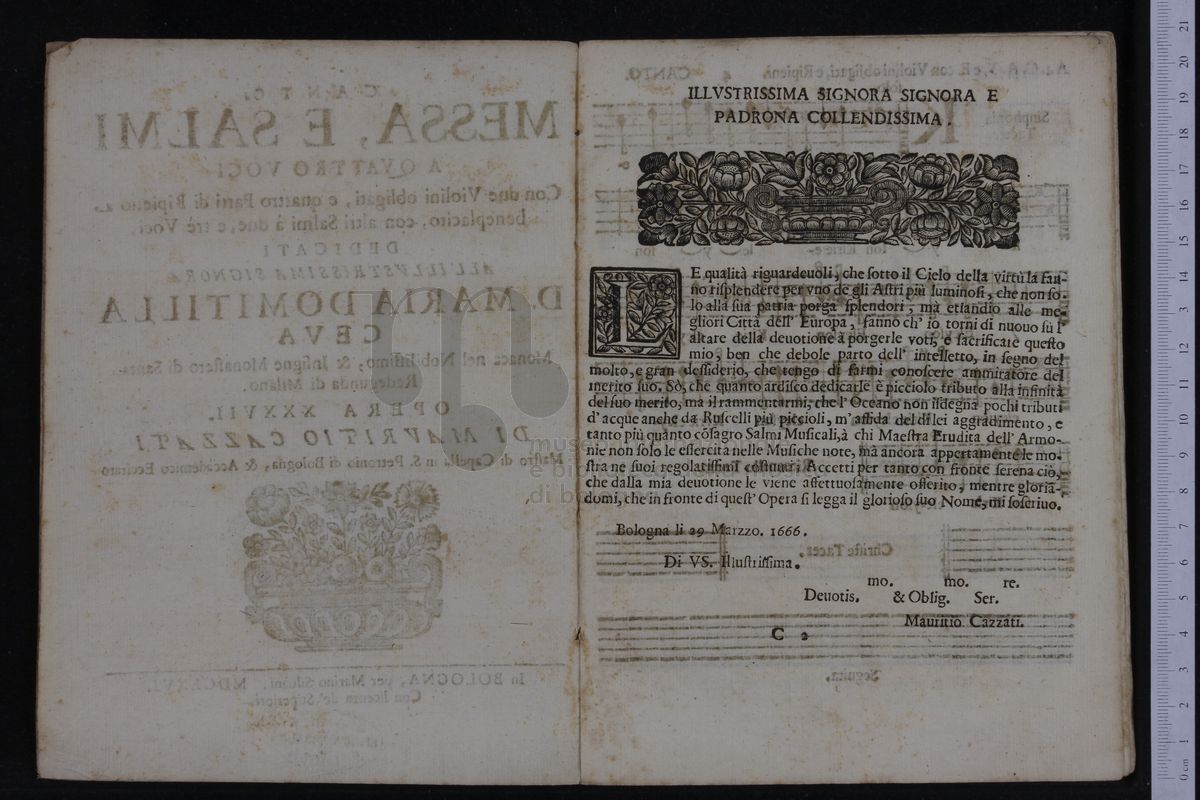 ILLVSTRISSIMA SIGNORA SIGNORA E
PADRONA COLLENDISSIMA.
LE qualità riguardeuoli, che sotto il Cielo della virtù la fan-
no risplendere per vno de gli Astri più luminosi, che non so-
lo alla sua patria porga splendori, mà etiandio alle me-
gliori Città dell' Europa, fanno ch' io torni di nuouo sù l'
altare della deuotione à porgerle voti, e sacrificate questo
mio, ben che debole parto dell' intelletto, in segno del
molto, e gran dessiderio, che tengo di farmi conoscere ammiratore del
merito suo. Sò, che quanto ardisco dedicarle è picciolo tributo alla infinità
del suo merito, ma il rammentarmi, che l'Oceano non isdegna pochi tributi
d'acque anche da Ruscelli più piccioli, m'affida del di lei aggradimento, e
tanto più quanto cōsagro Salmi Musicali, à chi Maestra Erudita dell'Armo-
nie non solo le essercita nelle Musiche note, mà ancora appertamente le mo-
stra ne suoi regolatissimi costumi; Accetti per tanto con fronte serena ciò,
che dalla mia deuotione le viene affettuosamente offerito, mentre gloria-
domi, che in fronte di quest' Opera si legga il glorioso suo Nome, mi soscriuo.
Bologna li 29 Marzzo. 1666.
Di VS. Illustrissima.
mo. mo. re.
Deuotis. & Oblig. Ser.
Mauritio Cazzati.
C 2